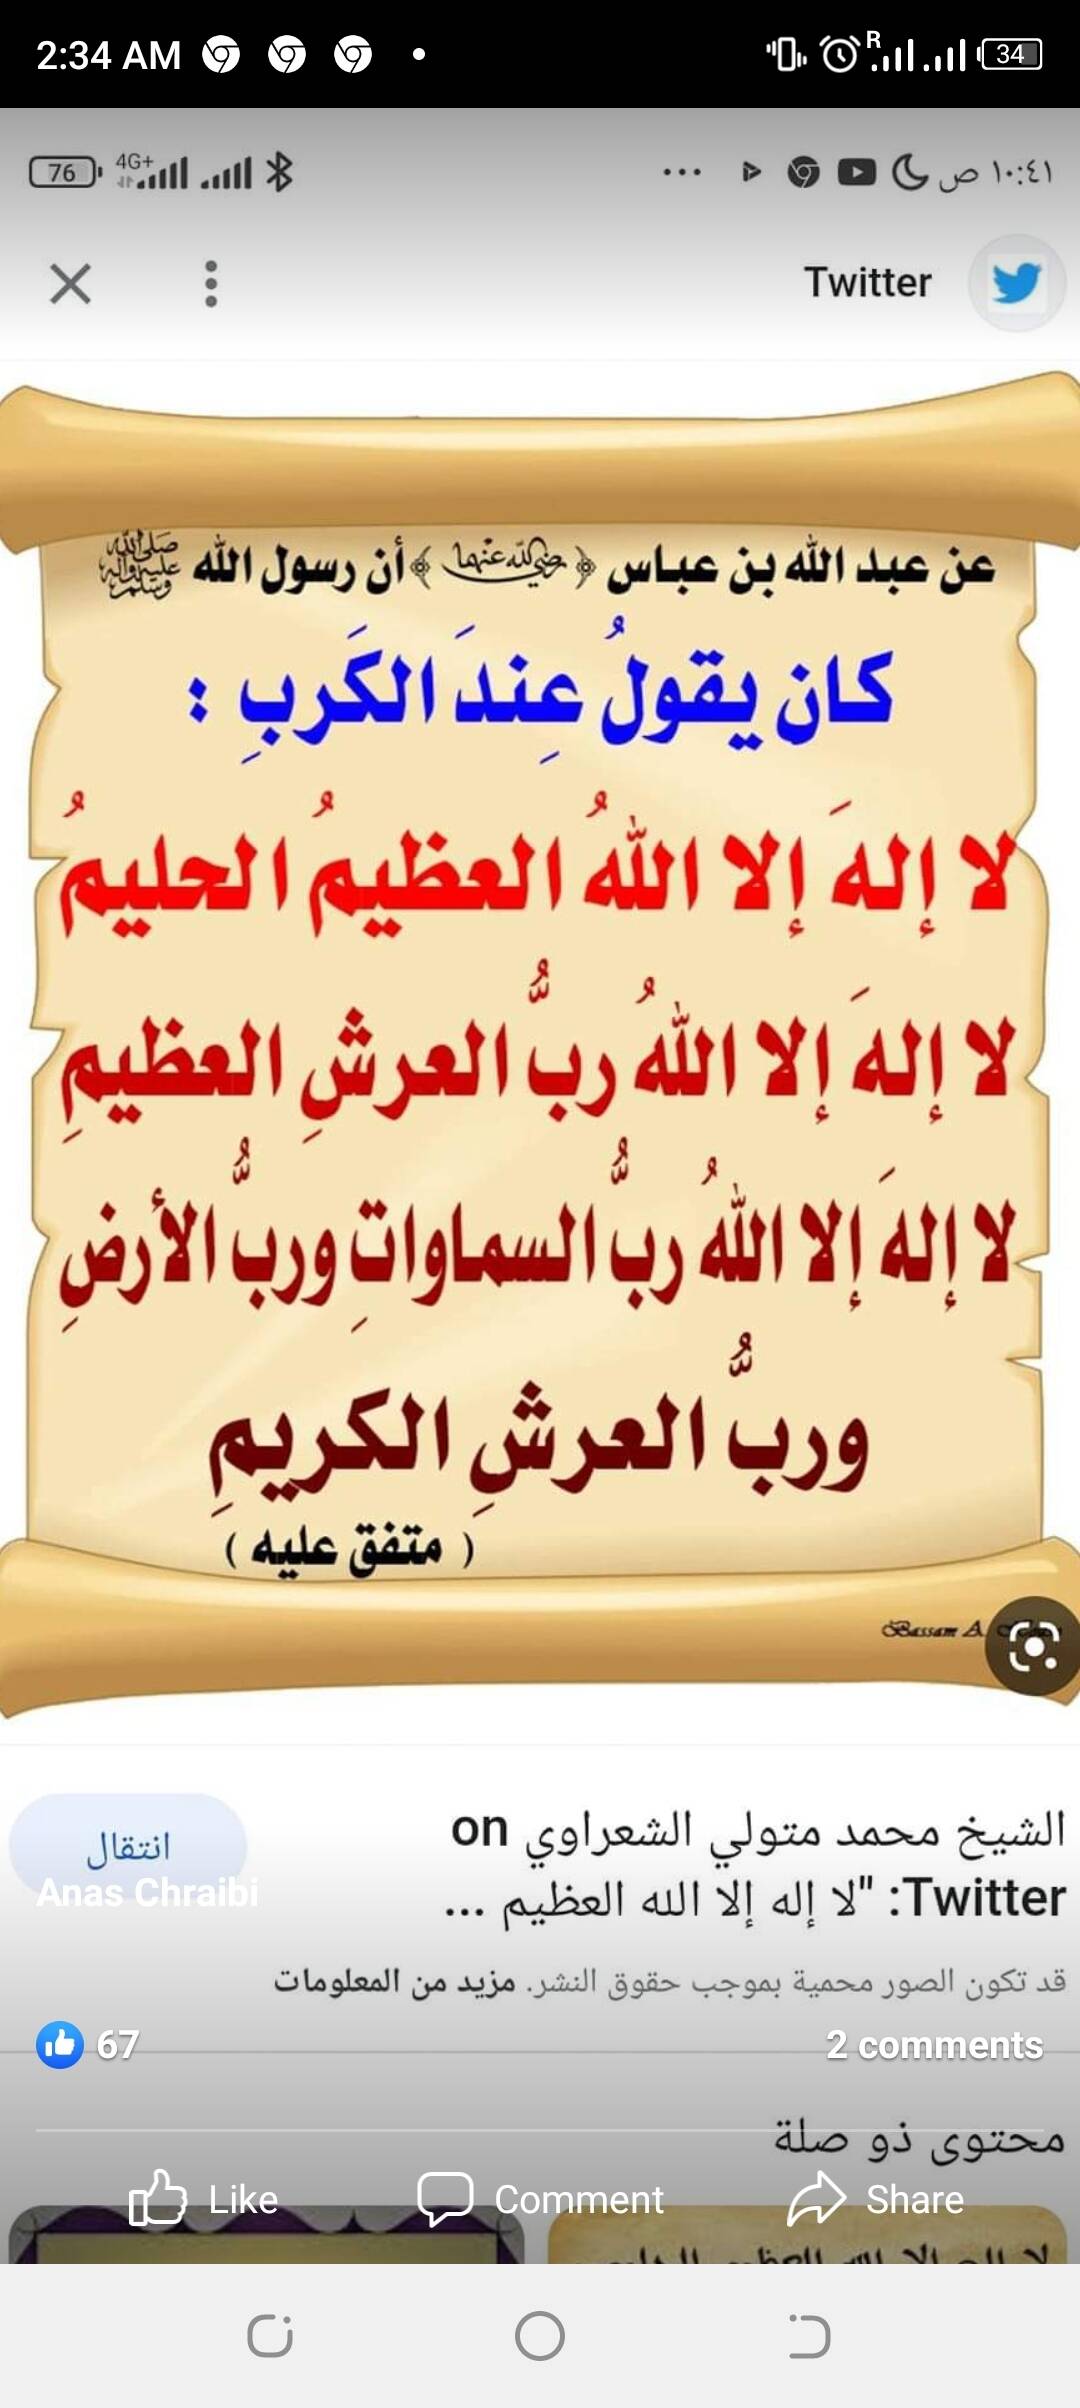 2:34 AM
R
34
76 4G+ ١٠:٤١ ص
Twitter
عن عبد الله بن عباس ﴿رضي الله عنهما﴾ أن رسول الله صلى الله عليه وآله وسلم
كان يقولُ عِندَ الكَربِ :
لا إلهَ إلا اللهُ العظيمُ الحليمُ
لا إلهَ إلا اللهُ ربُّ العرشِ العظيمِ
لا إلهَ إلا اللهُ ربُّ السماواتِ وربُّ الأرضِ
وربُّ العرشِ الكريمِ
( متفق عليه )
Bassam A.
الشيخ محمد متولي الشعراوي on
Twitter: "لا إله إلا الله العظيم ...
انتقال
Anas Chraibi
قد تكون الصور محمية بموجب حقوق النشر. مزيد من المعلومات
67
2 comments
محتوى ذو صلة
Like Comment Share